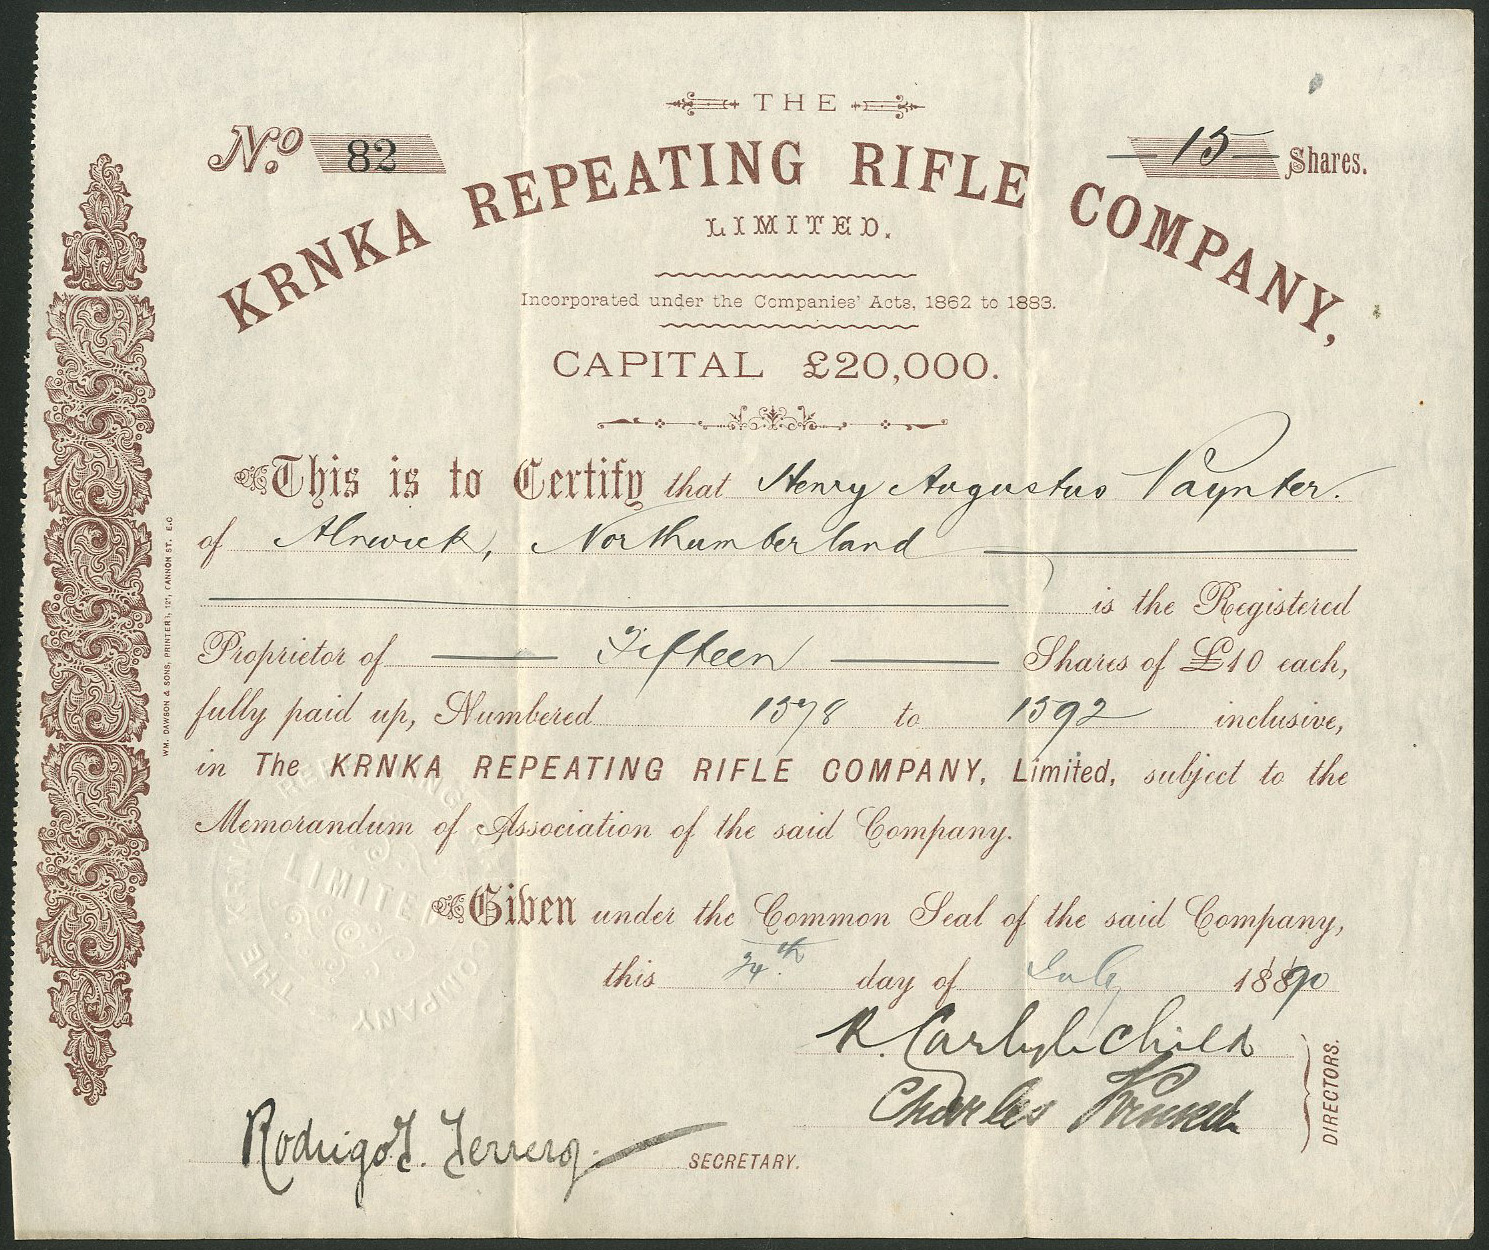 THE
No. 82
15 Shares.
KRNKA REPEATING RIFLE COMPANY,
LIMITED.
Incorporated under the Companies' Acts, 1862 to 1883.
CAPITAL £20,000.
This is to Certify that Henry Augustus Paynter.
of Alnwick, Northumberland
is the Registered
Proprietor of Fifteen Shares of £10 each,
fully paid up, Numbered 1378 to 1392 inclusive,
in The KRNKA REPEATING RIFLE COMPANY, Limited, subject to the
Memorandum of Association of the said Company.
Given under the Common Seal of the said Company,
this 24th day of July 1890
R. Carlyle Child
Charles
DIRECTORS.
Rodrigo
SECRETARY.
WM. DAWSON & SONS, PRINTERS, 121, CANNON ST. E.C
THE KRNKA REPEATING RIFLE COMPANY
LIMITED